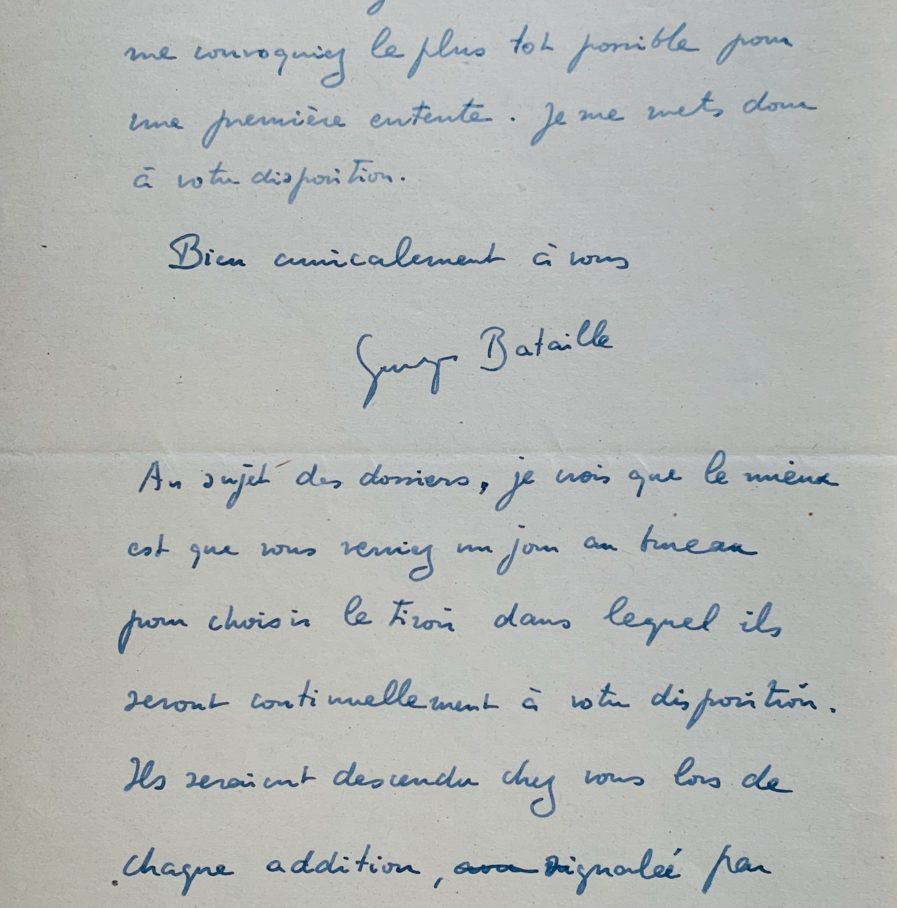 me convoquiez le plus tôt possible pour
une première entente. Je me mets donc
à votre disposition.
Bien amicalement à vous
Georges Bataille
Au sujet des dossiers, je crois que le mieux
est que vous veniez un jour au bureau
pour choisir le tiroir dans lequel ils
seront continuellement à votre disposition.
Ils seraient descendu chez vous lors de
chaque addition, signalée par